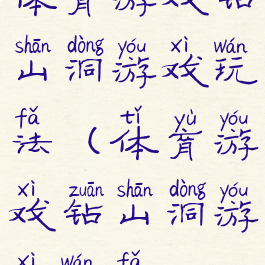 体育游戏钻
shān dòng yóu xì wán
山洞游戏玩
fǎ tǐ yù yóu
法(体育游
xì zuān shān dòng yóu
戏钻山洞游
xì wán fǎ